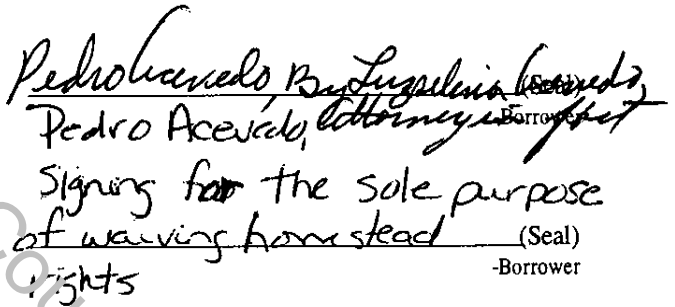 Pedro Acevedo, By Luzpelina Acevedo, (Seal)
Pedro Acevedo, attorney in fact -Borrower
Signing for the sole purpose
of waiving homestead (Seal)
rights -Borrower